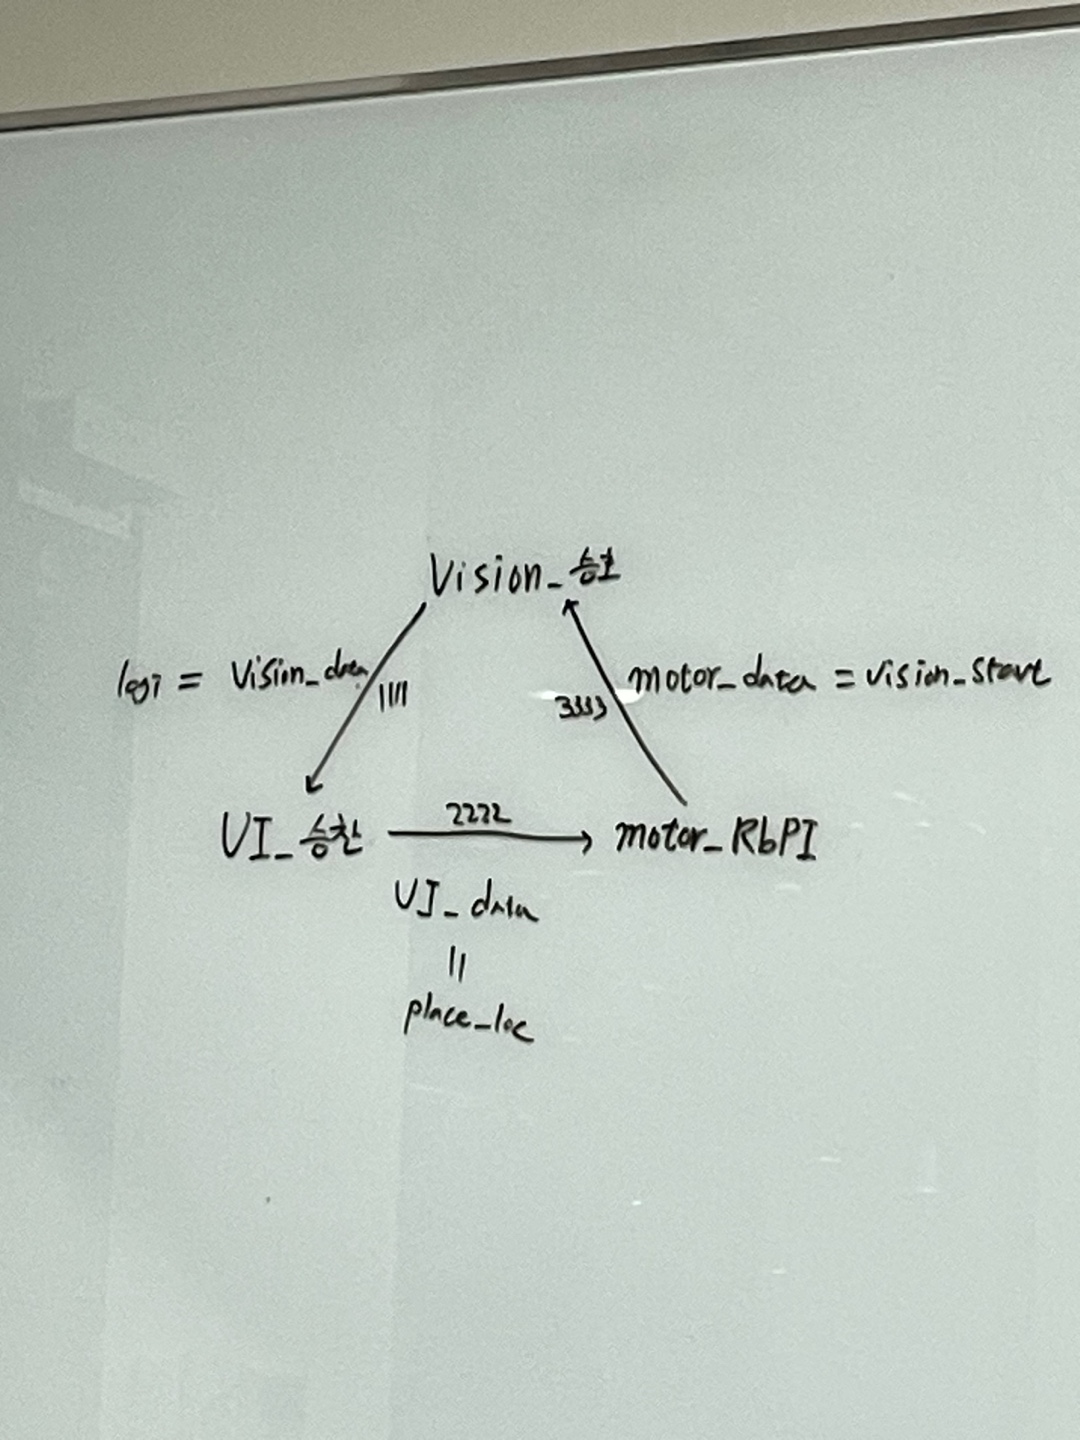 Vision_승호
logi = Vision_data
1111
3333
motor_data = vision_start
UI_승찬
2222
motor_RbPI
UI_data
=
place_loc